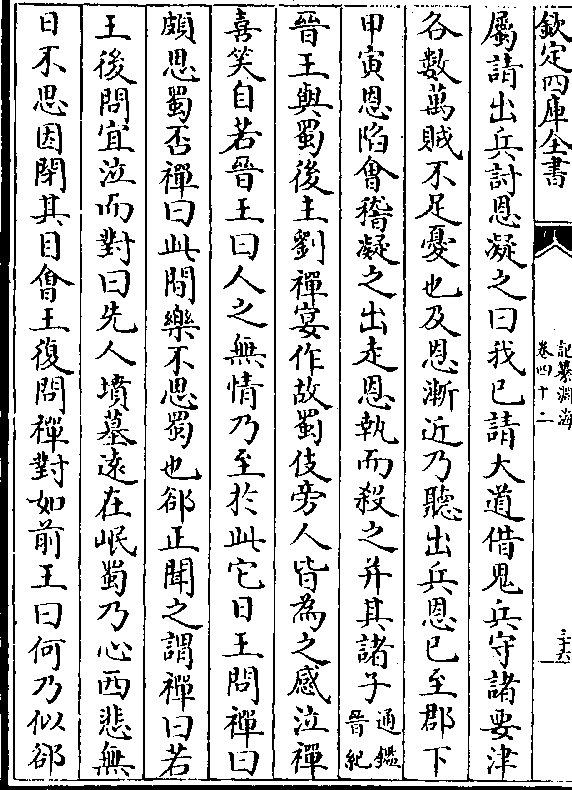 欽定四庫全書
記纂淵海
卷四十二
三十六
屬請出兵討恩凝之曰我已請大道借鬼兵守諸要津
各數萬賊不足憂也及恩漸近乃聽出兵恩已至郡下
甲寅恩陷會稽凝之出走恩執而殺之并其諸子通鑑晉紀
晉王與蜀後主劉禪宴作故蜀伎旁人皆為之感泣禪
喜笑自若晉王曰人之無情乃至於此它日王問禪曰
頗思蜀否禪曰此間樂不思蜀也郤正聞之謂禪曰若
王後問宜泣而對曰先人墳墓遠在岷蜀乃心西悲無
日不思因閉其目會王復問禪對如前王曰何乃似郤